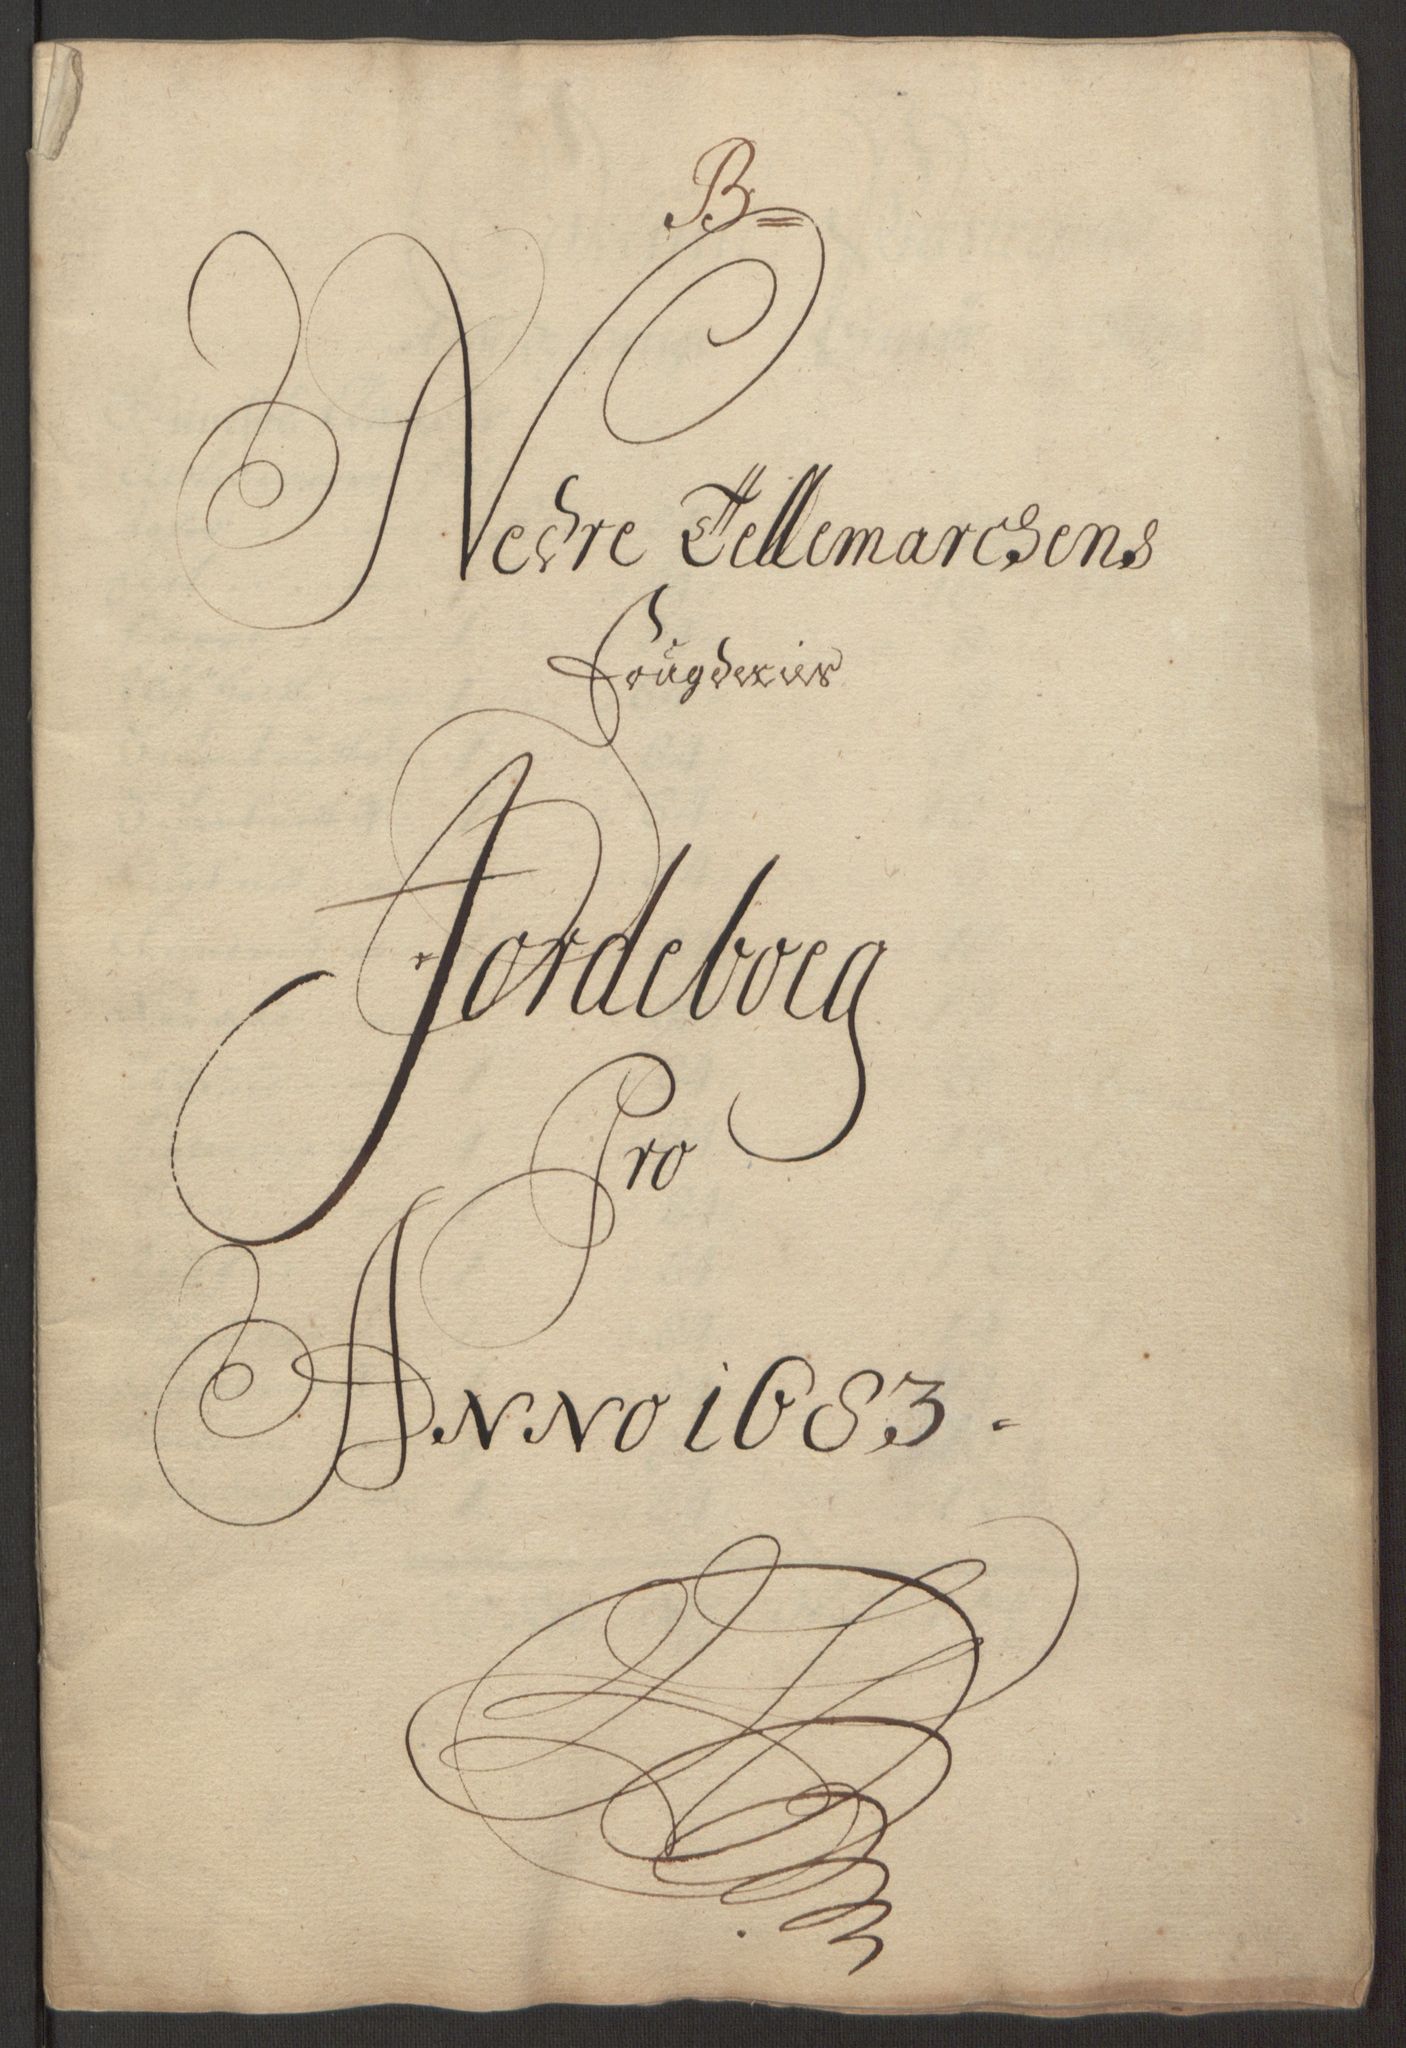 B
Nedre Tellemarchens
Fougderies
Jordeboeg
Pro
Anno 1683.